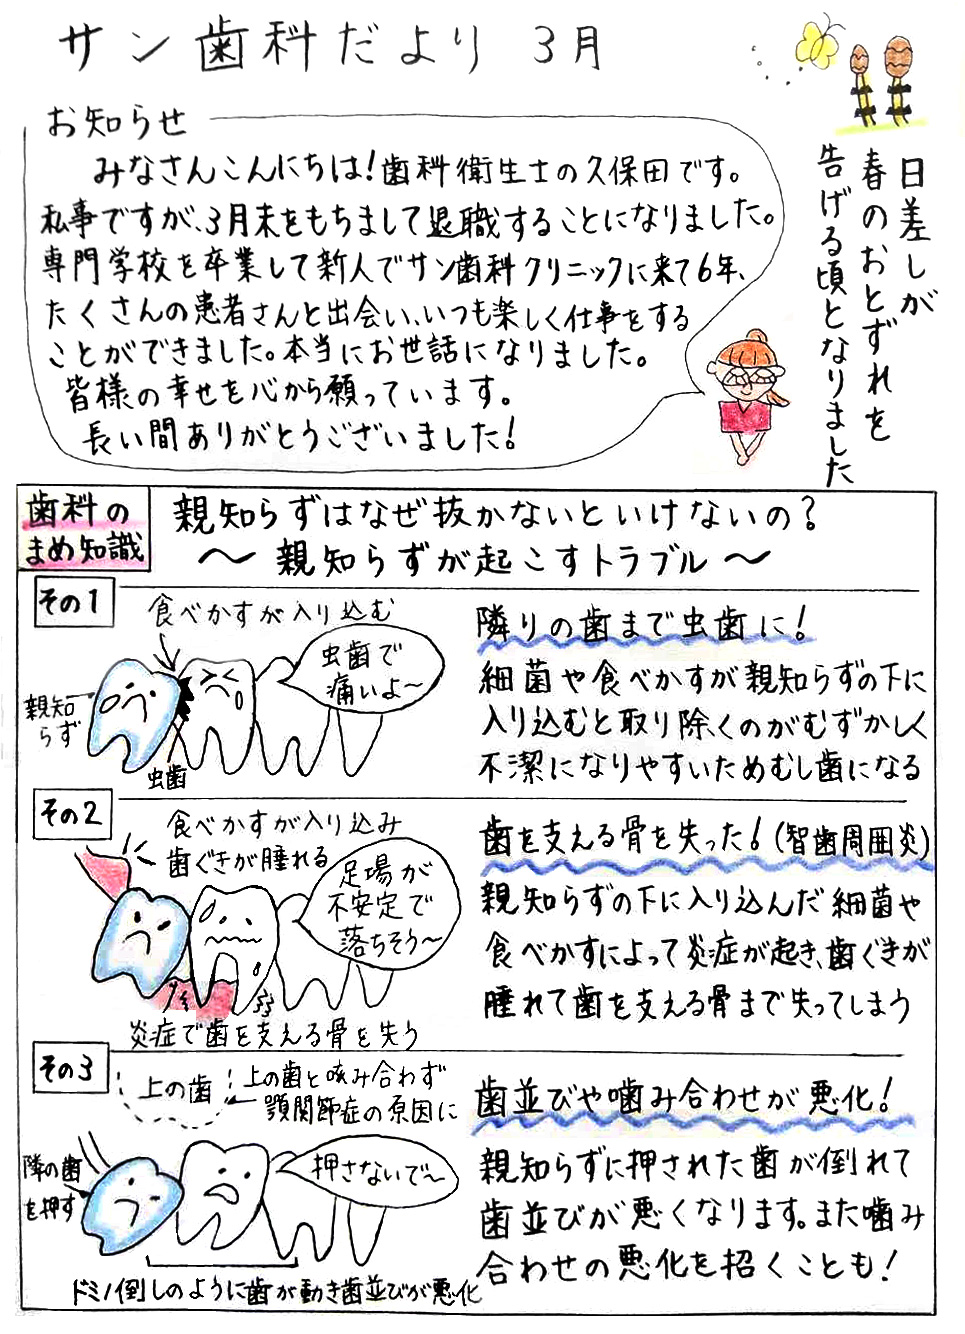 サン歯科だより 3月
日差しが
春のおとずれを
告げる頃となりました
お知らせ
みなさんこんにちは!歯科衛生士の久保田です。
私事ですが、3月末をもちまして退職することになりました。
専門学校を卒業して新人でサン歯科クリニックに来て6年、
たくさんの患者さんと出会い、いつも楽しく仕事をする
ことができました。本当にお世話になりました。
皆様の幸せを心から願っています。
長い間ありがとうございました!
歯科の
まめ知識
親知らずはなぜ抜かないといけないの?
〜親知らずが起こすトラブル〜
その1
食べかすが入り込む
虫歯で
痛いよ〜
親知
らず
虫歯
隣りの歯まで虫歯に!
細菌や食べかすが親知らずの下に
入り込むと取り除くのがむずかしく
不潔になりやすいためむし歯になる
その2
食べかすが入り込み
歯ぐきが腫れる
足場が
不安定で
落ちそう〜
炎症で歯を支える骨を失う
歯を支える骨を失った!(智歯周囲炎)
親知らずの下に入り込んだ細菌や
食べかすによって炎症が起き、歯ぐきが
腫れて歯を支える骨まで失ってしまう
その3
上の歯
上の歯と咬み合わず
顎関節症の原因に
隣の歯
を押す
押さないで〜
ドミノ倒しのように歯が動き歯並びが悪化
歯並びや噛み合わせが悪化!
親知らずに押された歯が倒れて
歯並びが悪くなります。また噛み
合わせの悪化を招くことも!